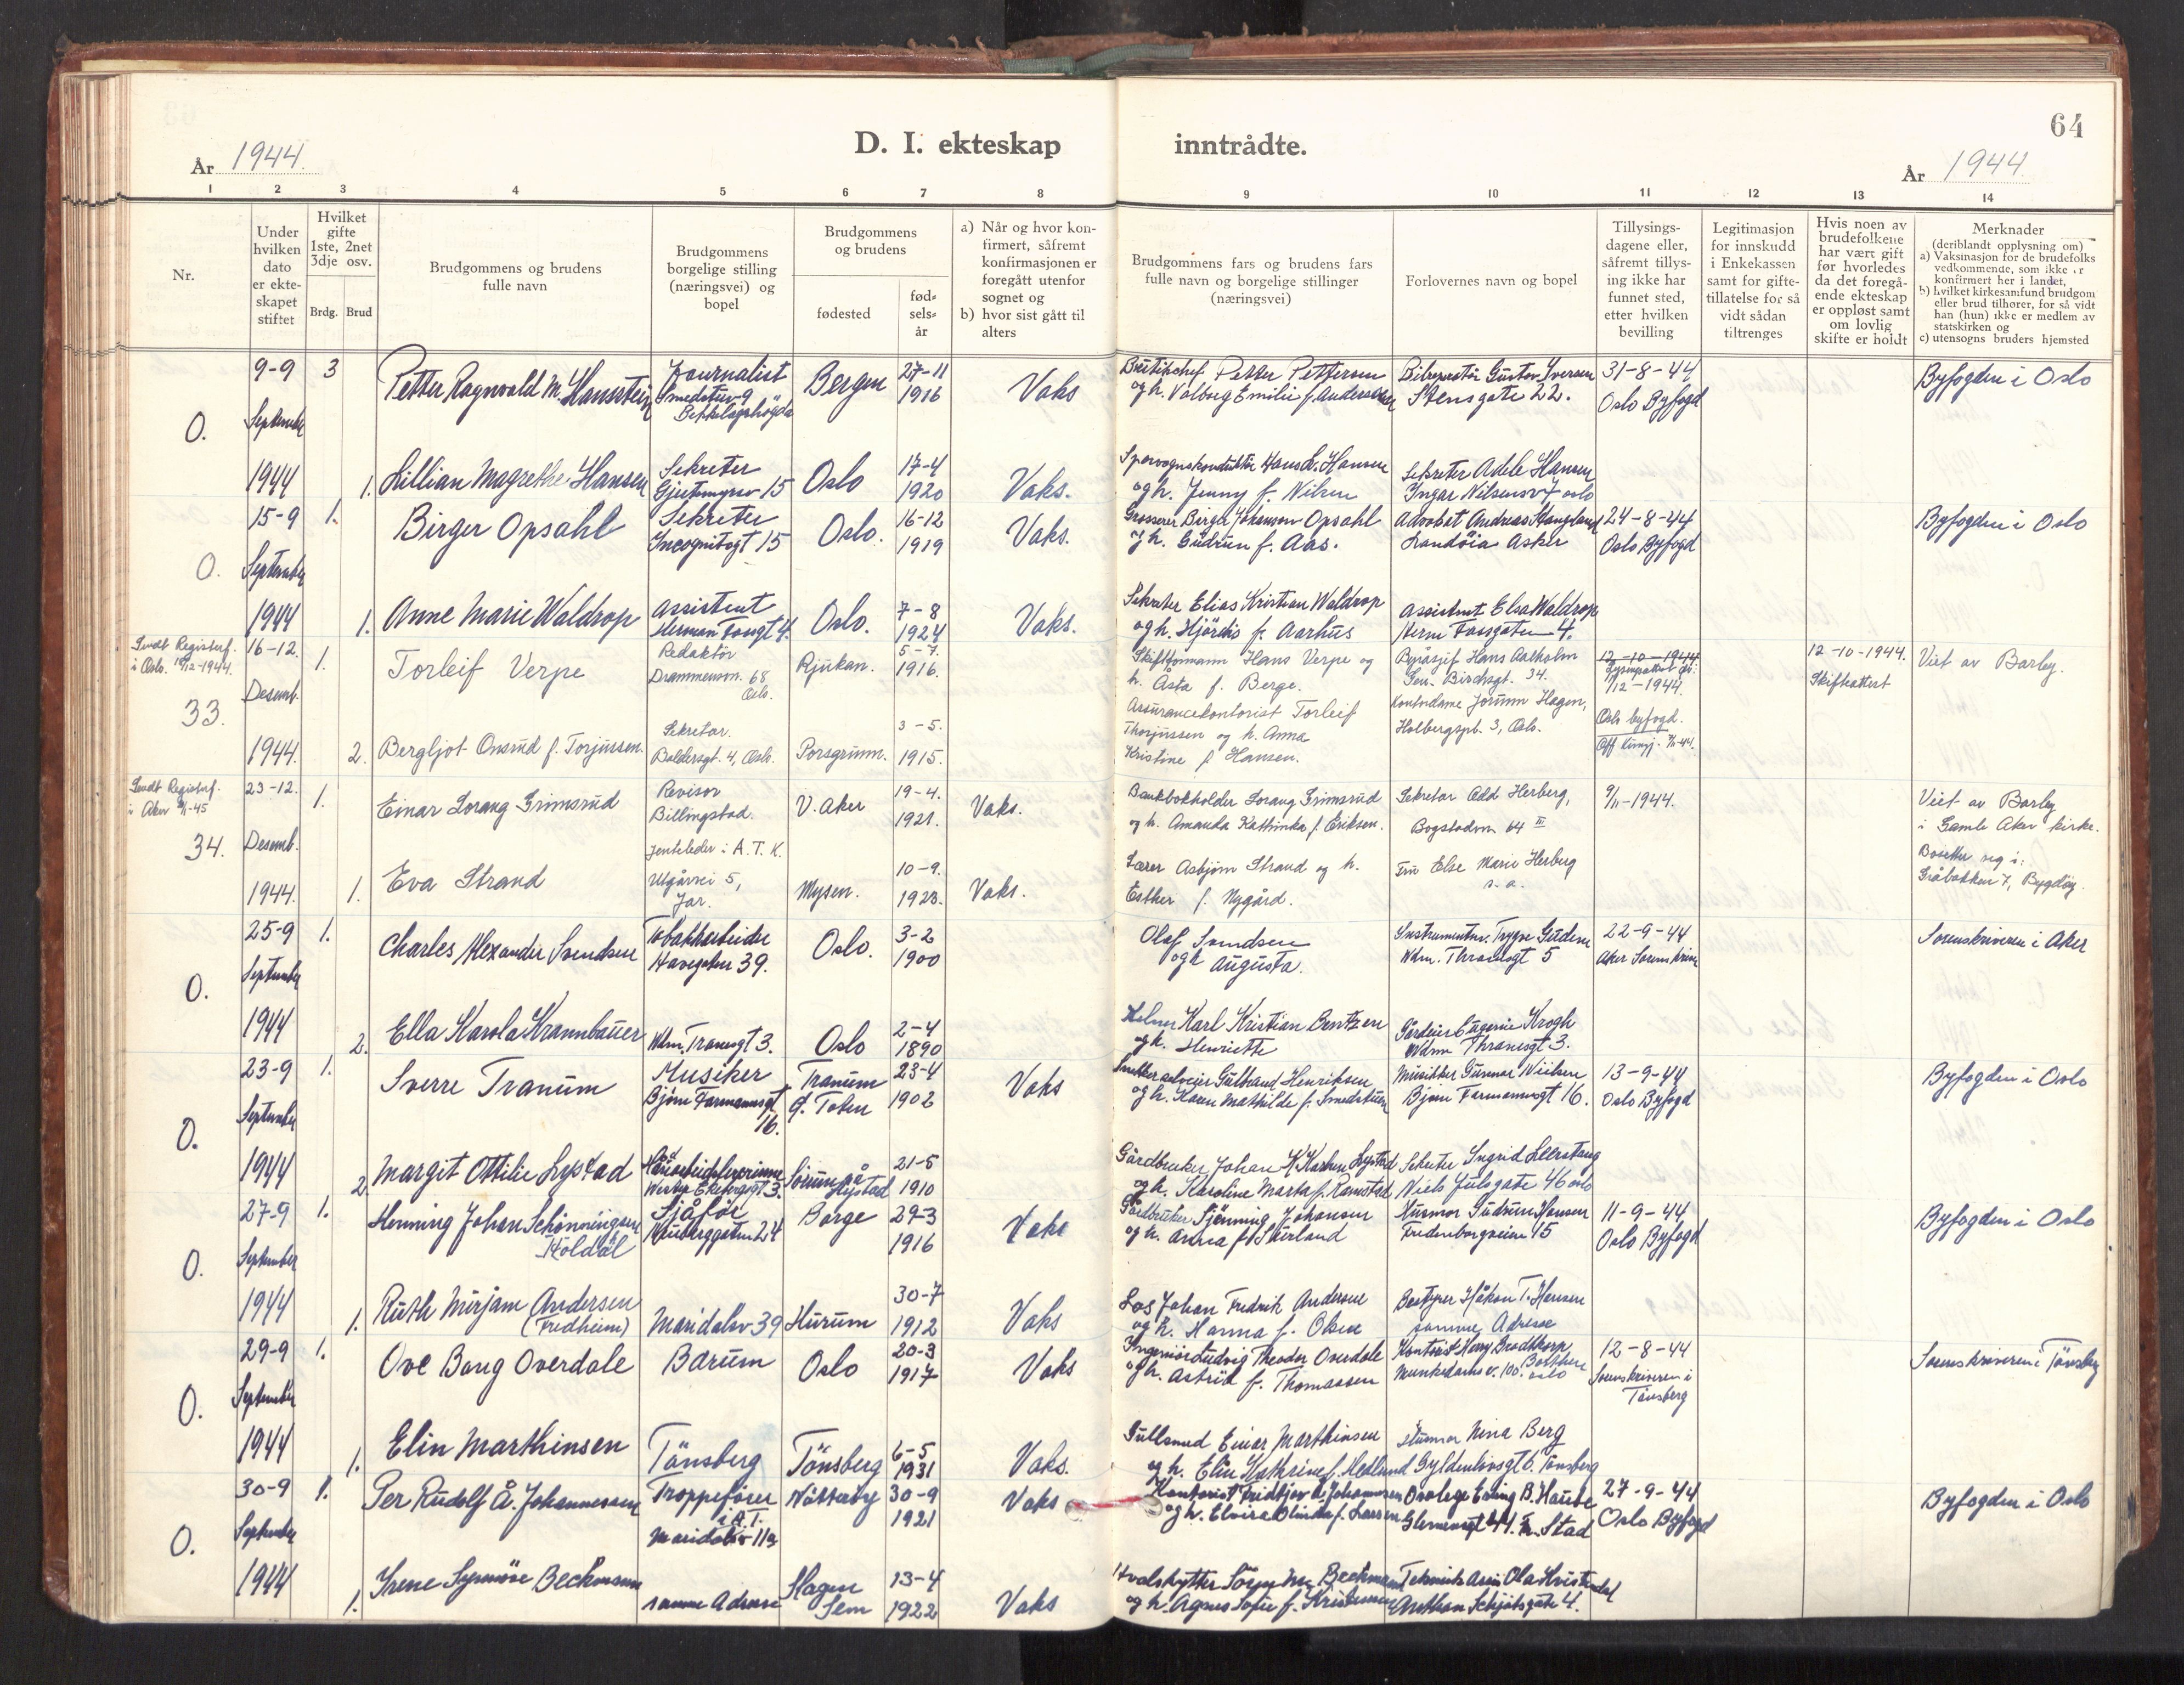 64
År 1944.
D. I. ekteskap inntrådte.
År 1944.
1 2 3 4 5 6 7 8 9 10 11 12 13 14
Nr.
Under hvilken dato er ekte-skapet stiftet
Hvilket gifte 1ste, 2net 3dje osv.
Brdg. Brud
Brudgommens og brudens fulle navn
Brudgommens borgelige stilling (næringsvei) og bopel
Brudgommens og brudens
fødested
fød-sels-år
a) Når og hvor kon-firmert, såfremt konfirmasjonen er foregått utenfor sognet og
b) hvor sist gått til alters
Brudgommens fars og brudens fars fulle navn og borgelige stillinger (næringsvei)
Forlovernes navn og bopel
Tillysings-dagene eller, såfremt tillys-ing ikke har funnet sted, etter hvilken bevilling
Legitimasjon for innskudd i Enkekassen samt for gifte-tillatelse for så vidt sådan tiltrenges
Hvis noen av brudefolkene har vært gift før hvorledes da det foregå-ende ekteskap er oppløst samt om lovlig skifte er holdt
Merknader
(deriblandt opplysning om)
a) Vaksinasjon for de brudefolks vedkommende, som ikke er konfirmert her i landet,
b) hvilket kirkesamfund brudgom eller brud tilhører, for så vidt han (hun) ikke er medlem av statskirken og
c) utensogns bruders hjemsted
O.
9-9 September 1944
3
Petter Ragnvald M. Hamstein
Journalist
Smedstuv 9
Bekkelagshøgda
Bergen
27-11
1916
Vaks
Petter Pettersen
og h. Valborg Emilie f. Andersen
Gustav Iversen
Stensgate 22.
31-8-44
Oslo Byfogd
Byfogden i Oslo
1. Lillian Magrethe Hansen
Sekretær
15
Oslo
17-4
1920
Vaks.
Hans L. Hansen
og h. Jenny f. Nilsen
Sekretær Adele Hansen
Ingar Nilsensv 7 oslo
O.
15-9 September 1944
1.
Birger Opsahl
Sekretær
Incognitogt 15
Oslo.
16-12
1919
Vaks.
Grosserer Birger Johanson Opsahl
og h. Gudrun f. Aas.
Advokat Andreas Stangland
Landøia Asker
24-8-44
Oslo Byfogd
Byfogden i Oslo
1. Anne Marie Waldrop
Assistent
Herman Fossgt 4.
Oslo.
7-8
1924
Vaks.
Sekretær Elias Kristian Waldrop
og h. Hjördis f. Aarhus
Assistent Elsa Waldrop
Herm Fossgaten 4.
Sendt Registerf. i Oslo. 19/12-1944.
33.
16-12. Desemb. 1944.
1.
Torleif Verpe
Redaktør
Drammensvn. 68
Oslo.
Rjukan.
5-7.
1916.
Skiftformann Hans Verpe og
h. Åsta f. Berge.
Byråsjef Hans Aasholm
Sen. Birchsgt. 34.
12-10-1944
/12-1944.
Oslo byfogd.
12-10-1944.
Skifteattest
Viet av Barby.
2. Bergljot Onsrud f. Torjussen.
Sekretær.
Baldersgt. 4, Oslo.
Porsgrunn.
3-5.
1915.
Assurancekontorist Torleif
Thorjussen og h. Anna
Kristine f. Hansen.
Kontordame Jorunn Hagen,
Holbergspl. 3, Oslo.
Sendt Registerf. i Aker 9/1-45
34.
23-12. Desemb. 1944.
1.
Einar Lorang Grimsrud
Revisor
Billingstad.
V. Aker
19-4.
1921.
Vaks.
Bankbokholder Lorang Grimsrud
og h. Amanda Kathinka f. Eriksen.
Sekretær Odd Herberg,
Bogstadvn. 64 III
9/11-1944.
Viet av Barby
i Gamle Aker kirke.
Bosetter seg i:
Gråbakken 7, Bygdøy.
1. Eva Strand
Jenteleder i A. T. K.
5,
Jar.
Mysen.
10-9.
1923.
Vaks.
Lærer Asbjørn Strand og h.
Esther f. Nygård.
Fru Else Marie Herberg
s. a.
O.
25-9 September 1944
1.
Charles Alexander Svendsen
Tobakkarbeider
Havegaten 39.
Oslo.
3-2
1900
Olaf Svendsen
og h Augusta.
Trygve Gudem
Wdm. Thranesgt 5
22-9-44
Aker Sorenskriver
Sorenskriveren i Aker
2. Ella Karola Krannbauer
Wdm. Tranesgt 3.
Oslo
2-4
1890
Karl Kristian Bentzen
og h. Henriette
Krogh
Wdm Thranesgt 3.
O.
23-9 September 1944
1.
Sverre Tranum
Musiker
Bjørn Farmannsgt
16.
Tranum
Ø. Toten
23-4
1902
Vaks
Gulbrand Henriksen
og h. Karen Mathilde f. Smedstuen
Musikker Gunnar Nielsen
Bjørn Farmannsgt 16.
13-9-44
Oslo Byfogd
Byfogden i Oslo
2. Margit Ottilie Lystad
3.
21-5
1910
Gårdbruker Johan
og h. Karoline Marta f. Ramstad
Sekretær Ingrid
Niels Julsgate 46 oslo
O.
27-9 September 1944
1.
Henning Johan Schönningsen
Koldal
Sjåfør
24
Borge
29-3
1916
Vaks
Gårdbruker Johansen
og h. Anna f.
Husmor Gudrun Hansen
Fredensborgveien 15
11-9-44
Oslo Byfogd
Byfogden i Oslo
1. Ruth Mirjam Andersen
(Fredheim)
Maridalsv 39
Hurum
30-7
1912
Vaks
Los Johan Fredrik Andersen
og h. Hanna f. Olsen
Bestyrer Håkon T. Hansen
samme Adresse
O.
29-9 September 1944
1.
Ove Bang Overdale
Bærum
Oslo
20-3
1917
Vaks
Ingeniør Ludvig Theodor Overdale
og h. Astrid f. Thomassen
Kontorist
Munkedamsv. 100. oslo
12-8-44
Sorenskriveren i
Tønsberg
Sorenskriveren i Tønsberg
1. Elin Marthinsen
Tönsberg
Tönsberg
6-5
1931
Vaks.
Gullsmed Einar Marthinsen
og h. Elin Kathrine f. Hedlund
Husmor Nina Berg
Gyldenløvsgt 6. Tönsberg
O.
30-9 September 1944
1.
Per Rudolf Å. Johannessen
Troppefører
i A.T.
Maridalsv 11a
Nötteröy
30-9
1921
Vaks
Kontorist Fridtjov Johannesen
og h. Elvira f. Larsen
Erling B. Hauske
27-9-44
Oslo Byfogd
Byfogden i Oslo
1. Irene Synnöve Beckmann
samme Adresse
Slagen
Sem
13-4
1922
Vaks
Hvalskytter Beckmann
og h. Agnes Sofie f. Kristensen
Anthon Schjøtsgate 4.